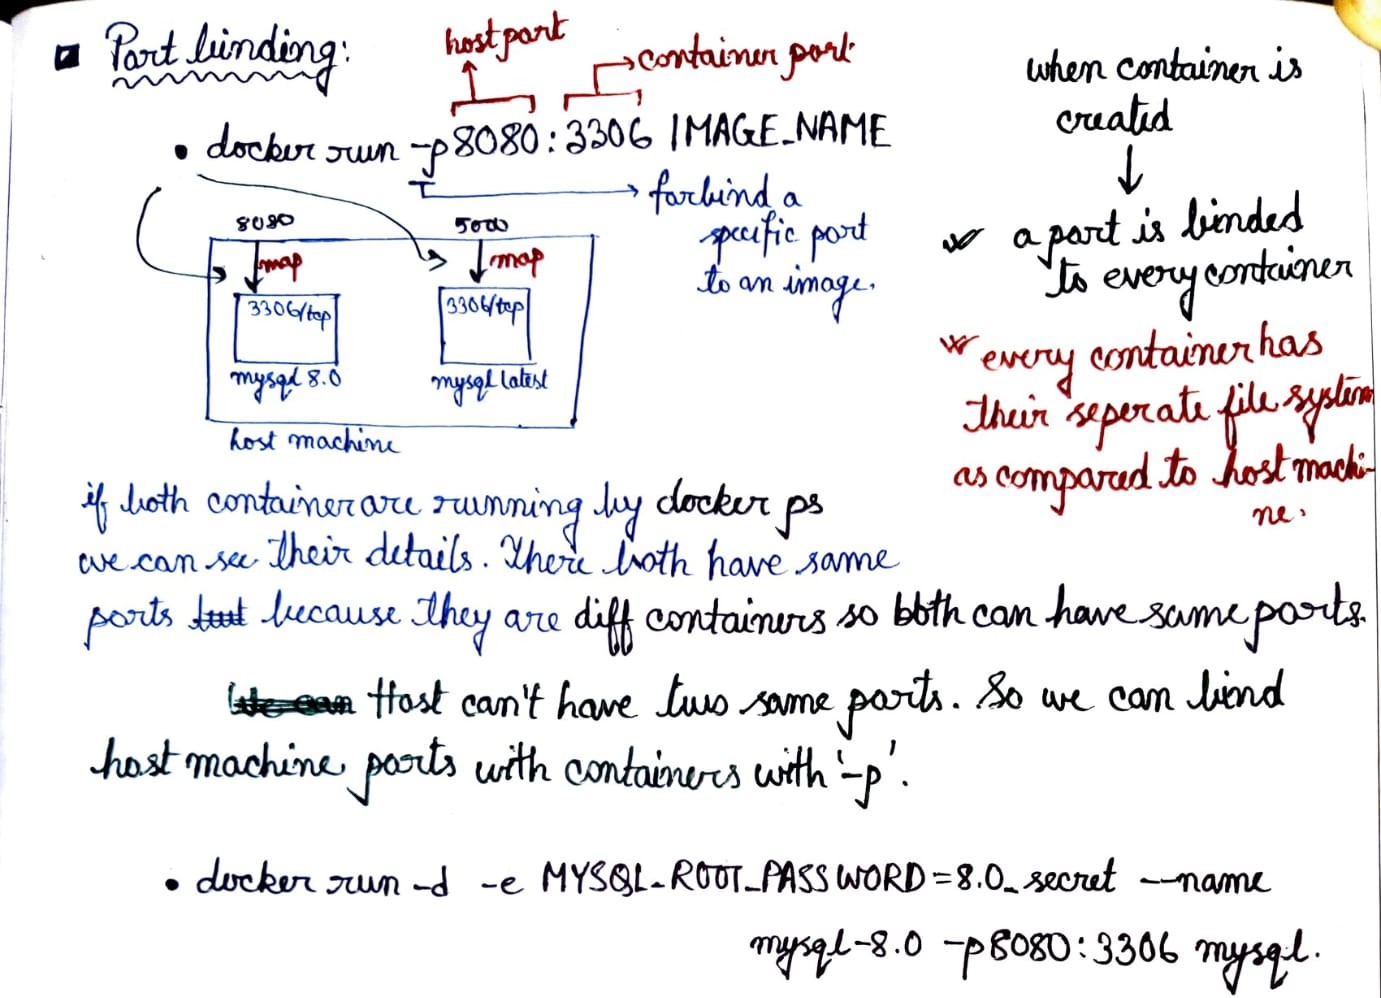 Port binding:
host port
container port
• docker run -p 8080 : 3306 IMAGE_NAME
for bind a
specific port
to an image.
8080
5000
map
map
3306/tcp
3306/tcp
mysql 8.0
mysql latest
host machine
when container is
created
a port is binded
to every container
every container has
their seperate file system
as compared to host machi-
ne.
if both container are running by docker ps
we can see their details. There both have same
ports but because they are diff containers so both can have same ports.
We can Host can't have two same ports. So we can bind
host machine ports with containers with '-p'.
• docker run -d -e MYSQL_ROOT_PASSWORD=8.0_secret --name
mysql-8.0 -p8080:3306 mysql.